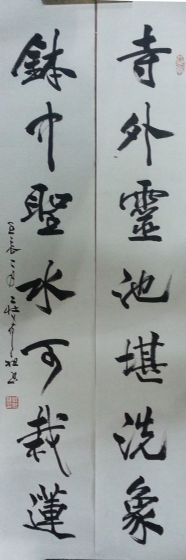 寺外靈池堪洗象
鉢中聖水可栽蓮